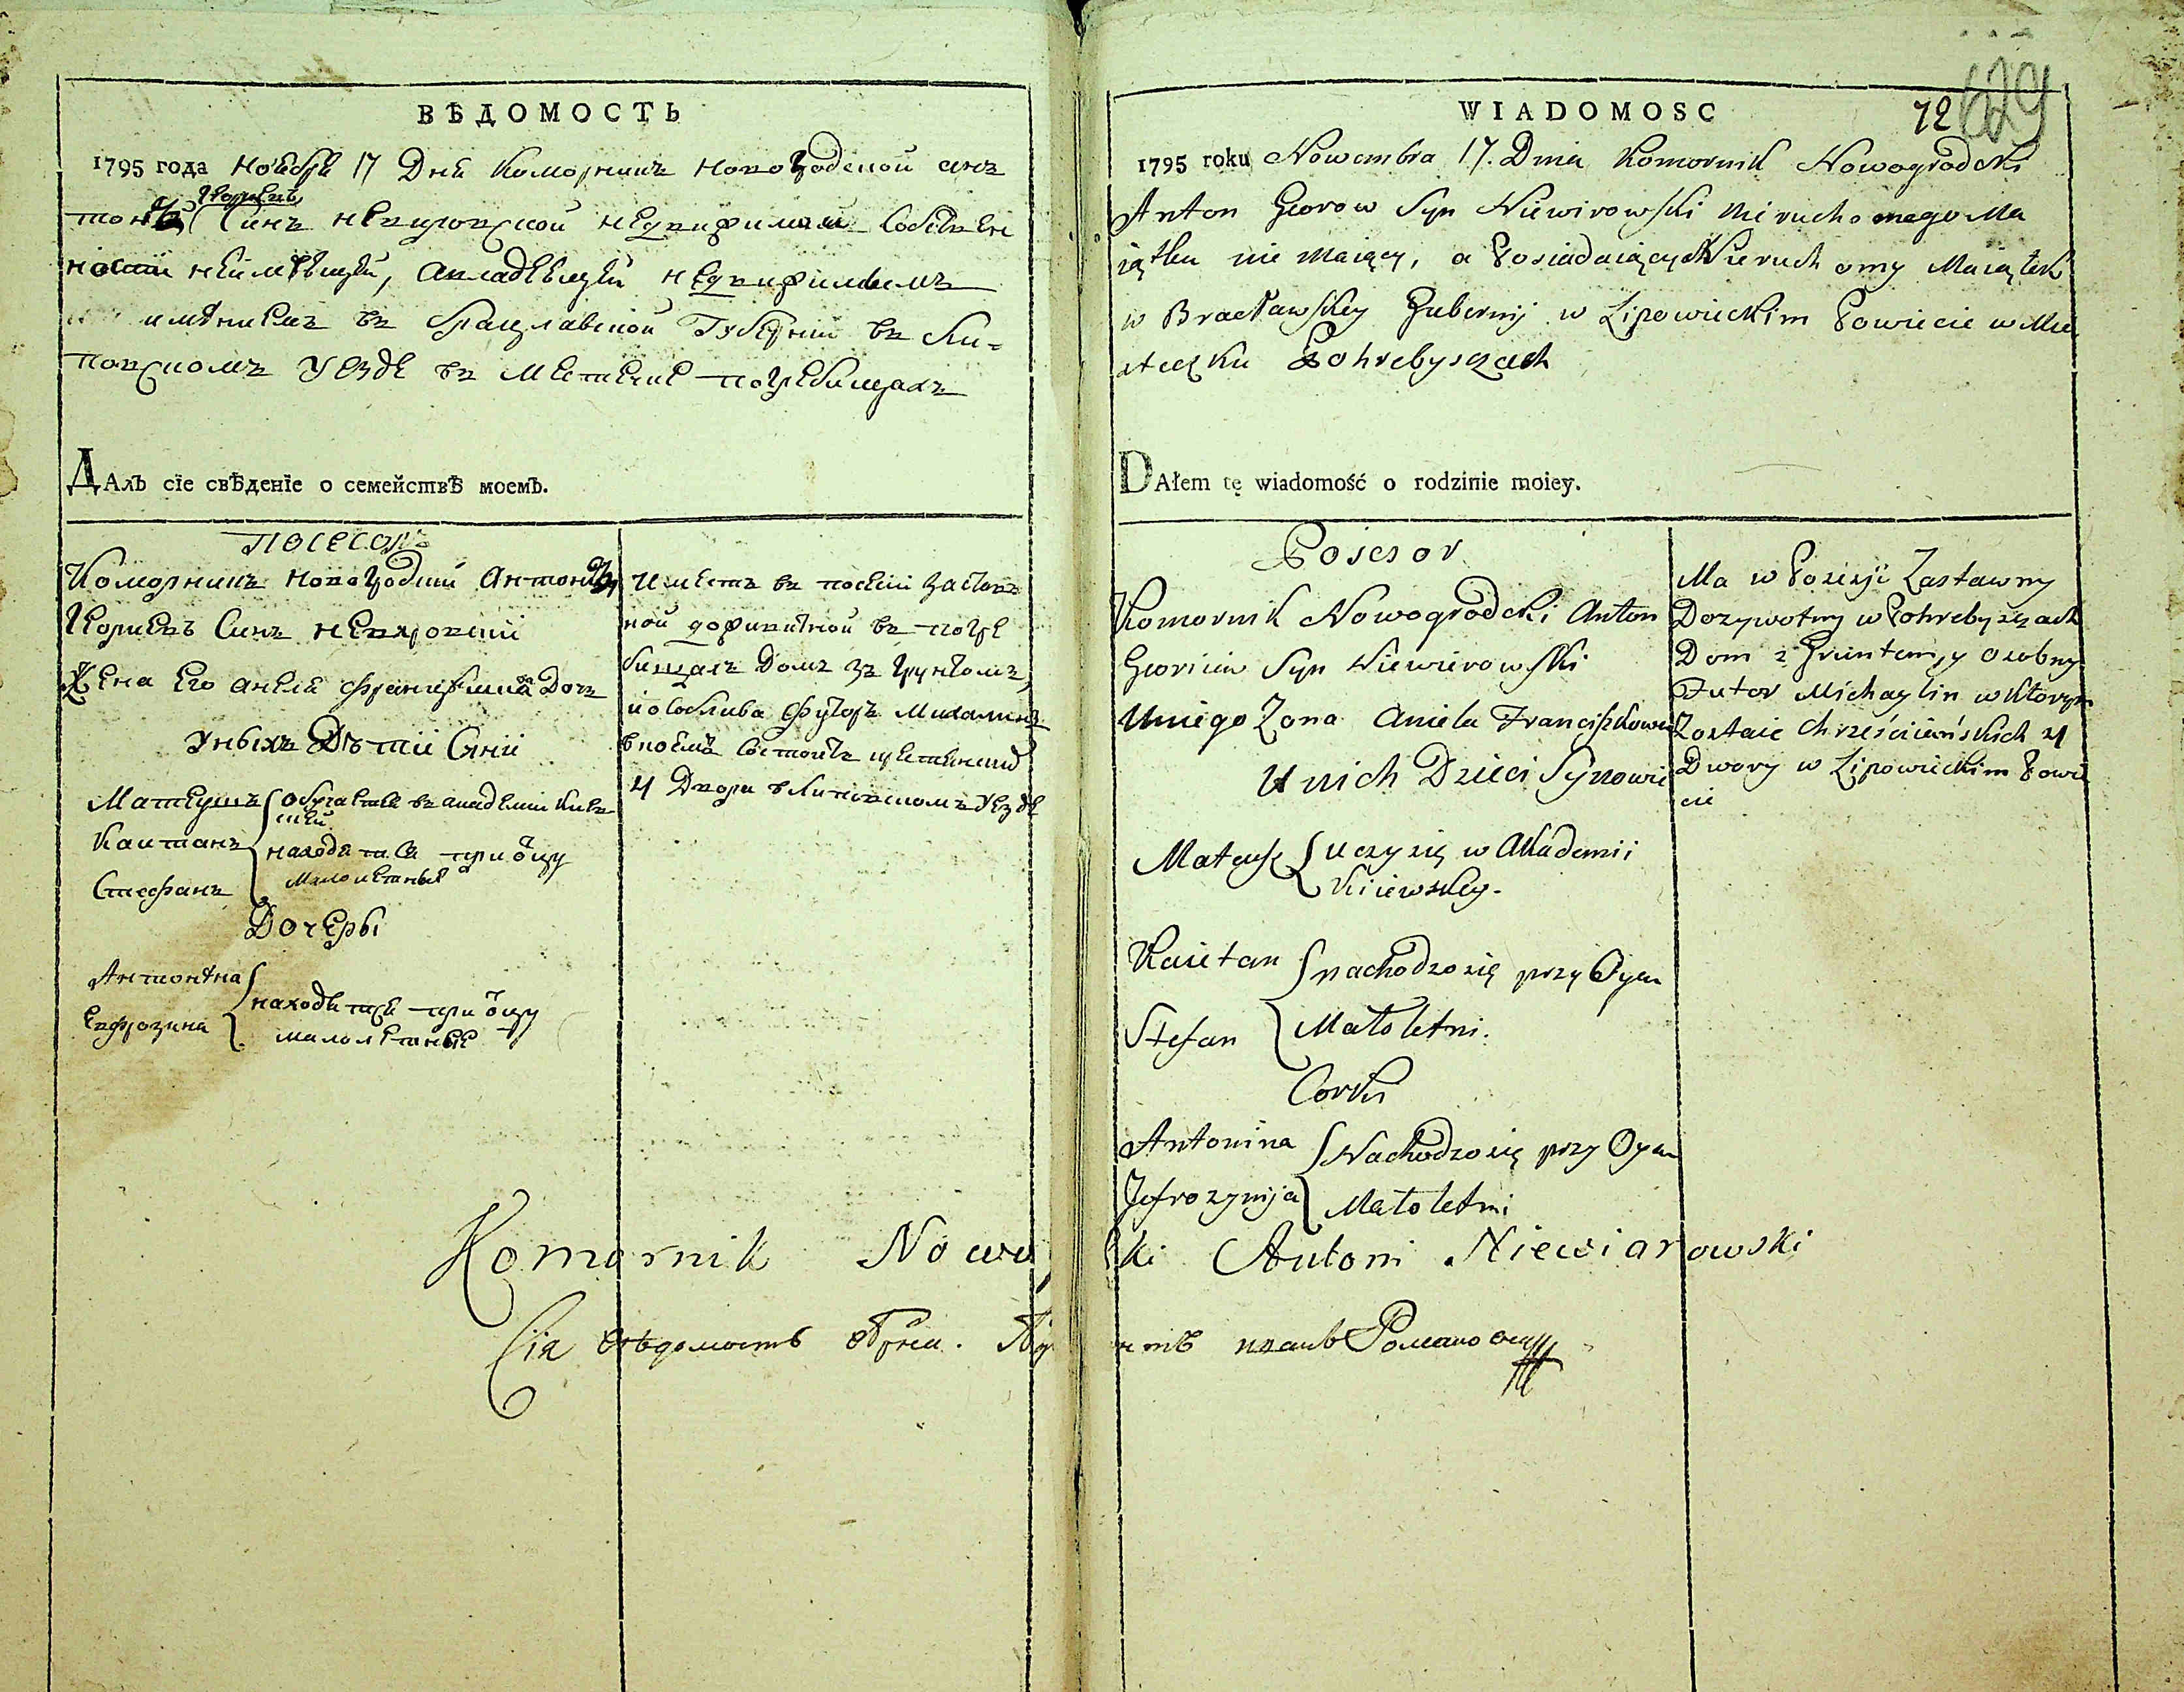 ВѢДОМОСТЬ
1795 года Ноебря 17 Дня Коморникъ Новогродской Ан
тонъ Сынъ недвижимой собствен
ности неимѣющей, а владѣющей недвижимымъ
имѣниемъ въ Брацлавской Губерний въ Ли=
повскомъ Уезде въ местечке Погребищахъ
ДАлъ сїе свѣденїе о семействѣ моемъ.
Посесоръ
Коморникъ Новогродский Антонъ
Сынъ Невяровский
Жена Его Анеля Францишкова Дочь
У ныхъ Дѣтий Сыни
Матеушъ обучается въ академии Киев
ской
Каитанъ находятся при оцу
малолетные
Стефанъ
Дочеры
Антонѣна
находятся при оцу
Евфрозина
малолетные
имеетъ въ посесии застав
ной въ Погре
бищахъ Домъ зъ грунтомъ,
и особливо футоръ Михалинъ
4 Двори в Липовскомъ уезде
WIADOMOSC
72 629
1795 roku Nowembra 17. Dnia Komornik Nowogrodcki
Anton Geores Syn Niewirowski Nieruchomego Ma
iątku nie maiący, a Posiadaiących Nieruchomy Maiątek
w Bracławskiey Gubernij w Lipowieckim Powiecie w Mie
steczku Pohrebyszczach
DAłem tę wiadomość o rodzinie moiey.
Posesor
Komornik Nowogrodcki Anton
Syn Niewierowski
U niego Zona Aniela Franciszkowa
U nich Dzieci Synowie
Mateusz uczy się w Akademii
Kiiewskiey.
Kaietan nachodzo się przy Oycu
Stefan Małoletni.
Corki
Antonina Nachodzo się przy Oycu
Jefrozynija Małoletni
Ma w Posesji Zastawny
Dozywotny w Pohrebyszczach
Dom z Gruntem, y osobny
Futor Michaylin w ktorym
Zostaie chrześciańskich 4
Dwory w Lipowieckim Powie
cie
Komornik Nowo ki Antoni Niewiarowski
Сія вѣдомость